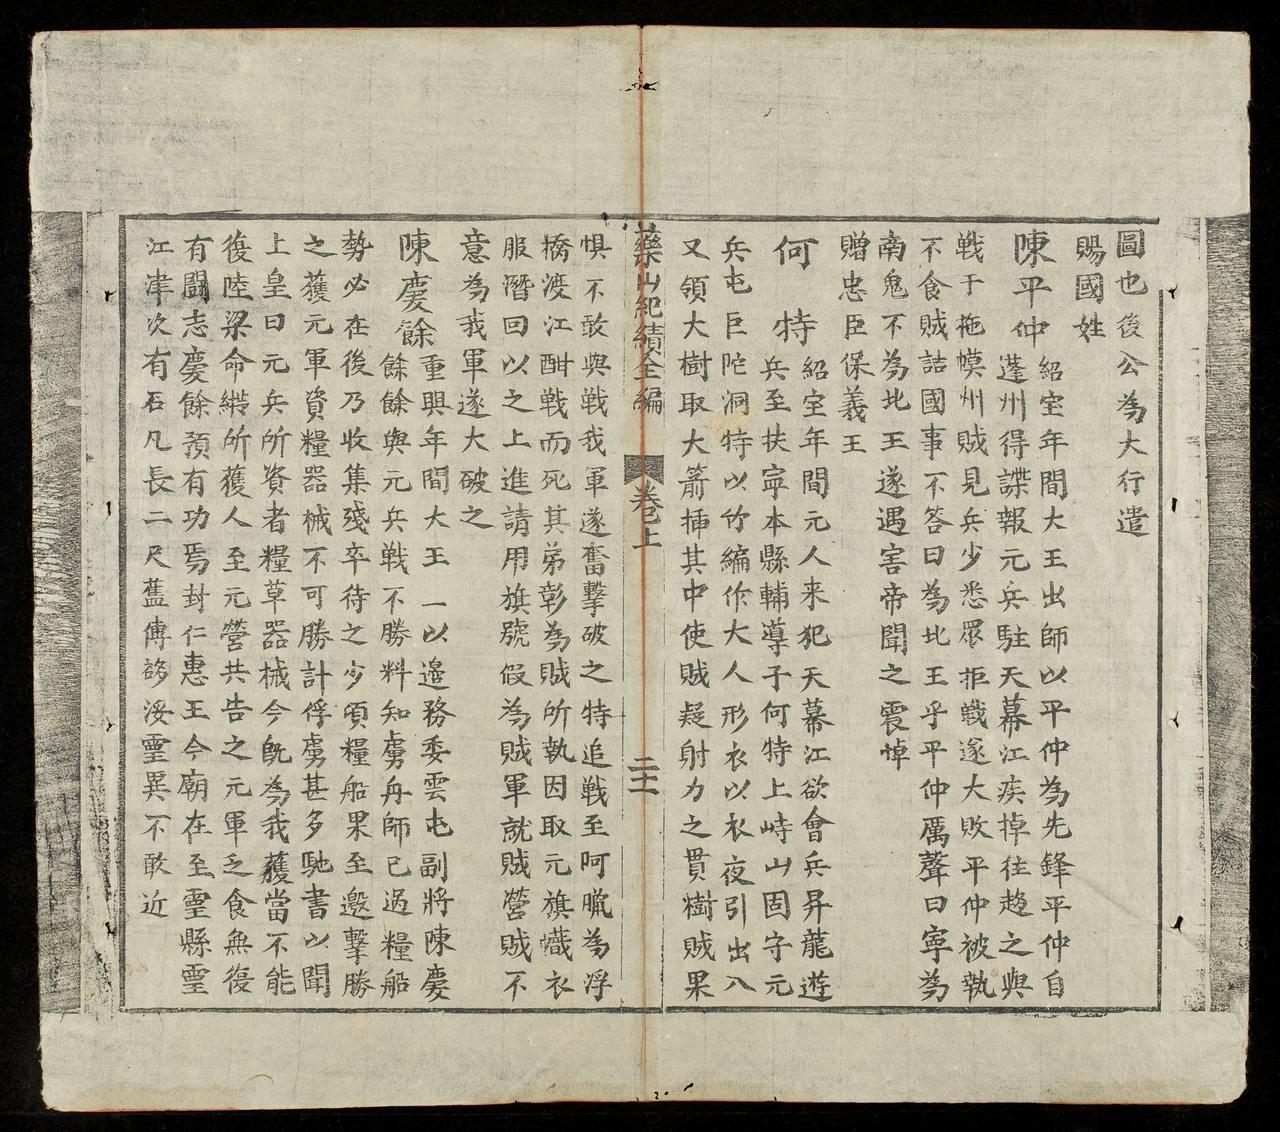 圖也後公為大行遣
賜國姓
陳平仲紹宝年間大王出師以平仲為先鋒平仲自
蓬州得諜報元兵駐天幕江疾掉往趋之與
戦于拖幙州賊見兵少悉眾拒戰遂大敗平仲被執
不食賊詰國事不答曰為北王乎平仲厲聲曰寧為
南鬼不為北王遂遇害帝聞之震悼
贈忠臣保義王
何特紹宝年間元人来犯天幕江欲會兵昇龍遊
兵至扶寧本縣輔導子何特上峙山固守元
兵屯巨陀洞特以竹編作大人形衣以衣夜引出入
又領大樹取大箭揷其中使賊疑射力之貫樹賊果
藥山紀績全編 卷上 二十一
惧不敢與戦我軍遂奮擊破之特追戦至阿臘為浮
橋渡江酣戦而死其弟彰為賊所執因取元旗幟衣
服潛回以之上進請用旗號假為賊軍就賊營賊不
意為我軍遂大破之
陳慶餘重興年間大王一以邉務委雲屯副將陳慶
餘餘與元兵戦不勝料知虜舟師已過糧船
勢必在後乃收集殘卒待之少頃糧船果至邀擊勝
之獲元軍資糧器械不可勝計俘虜甚多馳書以聞
上皇曰元兵所資者糧草器械今旣為我獲當不能
復陸梁命縦所獲人至元營共告之元軍乏食無復
有闘志慶餘預有功焉封仁惠王今廟在至靈縣靈
江津次有石凡長二尺舊傳諺沒靈異不敢近